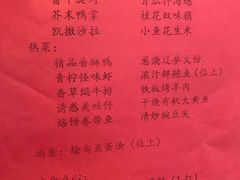 芥末鸭掌 桂花双味藕
凯撒沙拉 小鱼花生米
热菜:
精品香酥鸭 葱烧辽参大份
青柠怪味虾 浓汁鲜鲍鱼(位上)
香草焗牛排 铁板烤羊肉
诱惑美蛙仔 干烧有机大黄鱼
烙饼卷带鱼 清炒豌豆尖
汤羹: 烩乌鱼蛋汤(位上)